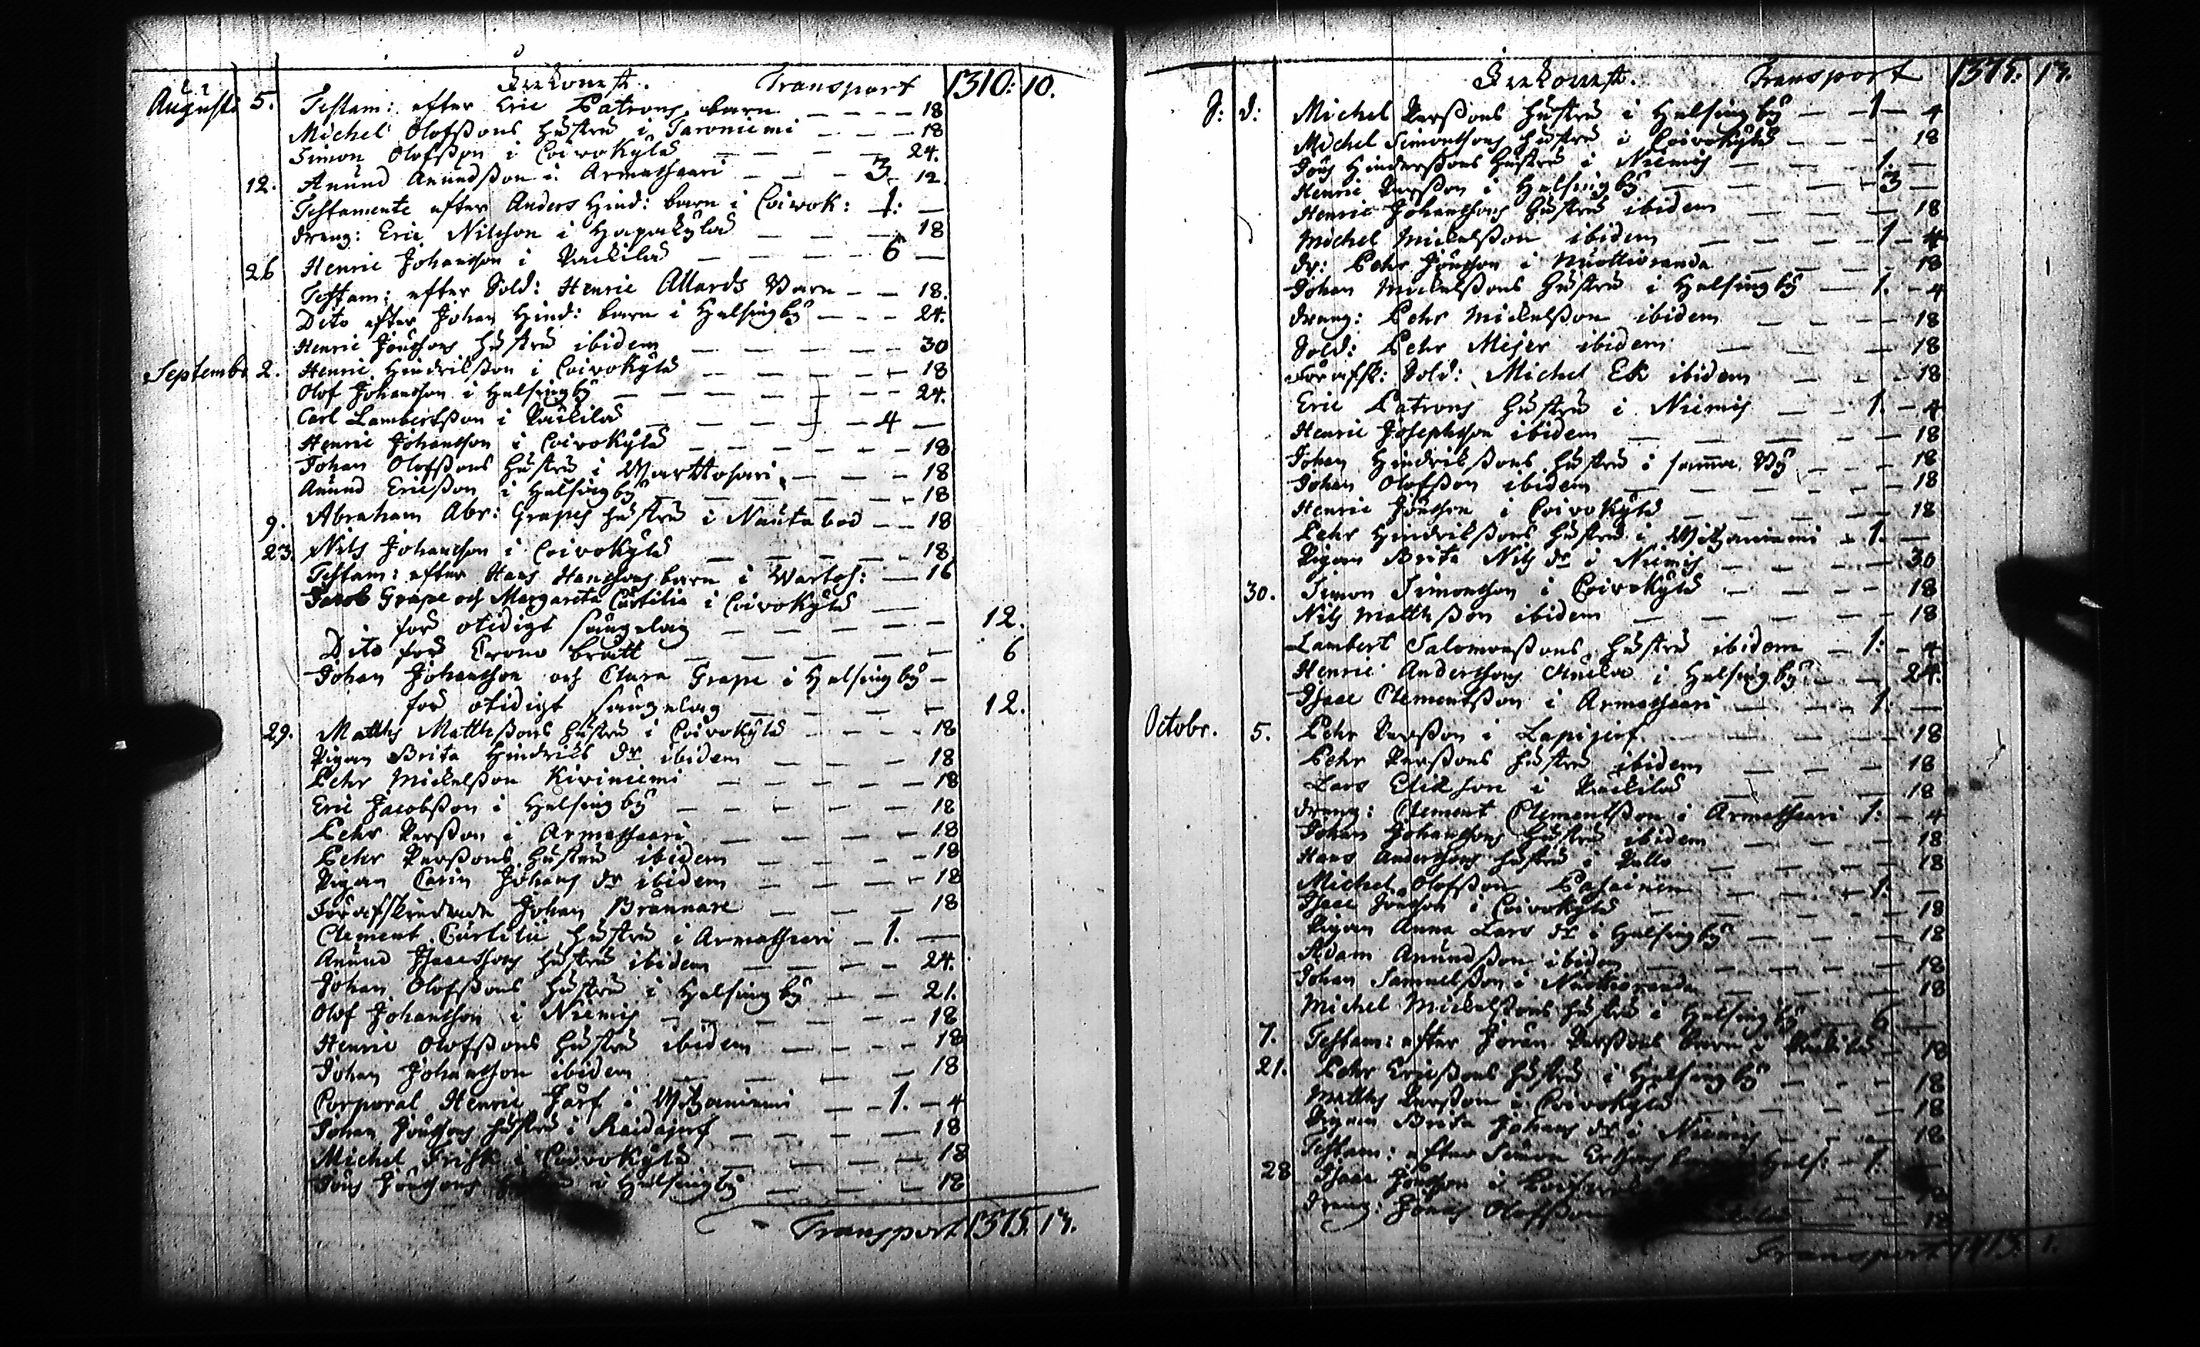 Inkomst. Transport 1310: 10.
Augusti 5. Testam: efter Eric Patrons barn — — — 18
Michel Olofßons hustru i Taroniemi — — — 18
Simon Olofßon i Coivokÿla — — — 24.
12. Anund Anundßon i Armassaari — — — 3. 12.
Testamente efter Anders Hind: barn i Coivok: 1: —
dreng: Eric Nilsson i Hapakÿla — — — 18
26 Henric Johansson i Päckilä — — — 6 —
Testam: efter Sold: Henric Allards Barn — — 18.
Dito efter Johan Hind: barn i Helsingbÿ — — — 24.
Henric Jönssons hustru ibidem — — — 30
Septembr 2. Henric Hindricßon i Coivokÿla — — — 18
Olof Johansson i Helsingbÿ — — — 24.
Carl Lambertßon i Päckilä — — — 4 —
Henric Johansson i Coivokÿla — — — 18
Johan Olofßons hustru i Marttosari — — — 18
Anund Ericßon i Helsingbÿ — — — 18
9. Abraham Abr: Grapes hustru i Nautabod — — 18
23. Nils Johansson i Coivokÿla — — — 18
Testam: efter Hans Hanssons barn i Martos: — 16
Jacob Grape och Margareta Cürtilia i Coivokÿla —
för otidigt sängelag — — — 12.
Dito för Crono brott — — — 6
Johan Johansson och Clara Grape i Helsingbÿ —
för otidigt sängelag — — — 12.
29. Matths Matthßons hustru i Coivokÿla — — — 18
Pigan Brita Hindrics dr ibidem — — — 18
Pehr Mickelßon Kiviniemi — — — 18
Eric Jacobßon i Helsingbÿ — — — 18
Pehr Perßon i Armassaari — — — 18
Pehr Perßons hustru ibidem — — — 18
Pigan Carin Johans dr ibidem — — — 18
Förafskedade Johan Brännare — — — 18
Clement Cürtilii hustru i Armassaari — 1. —
Anund Isacssons hustru ibidem — — — 24.
Johan Olofßons hustru i Helsingbÿ — — — 21.
Olof Johansson i Niemis — — — 18
Henric Olofßons hustru ibidem — — — 18
Johan Johansson ibidem — — — 18
Corporal Henric Järf i Witzaniemi — — 1. — 4
Johan Jönssons hustru i Raidajerf — — — 18
Michel Frisk i Coivokÿla — — — 18
Jöns Jönssons hustru i Helsingbÿ — — — 18
Transport 1375. 13.
Inkomst. Transport 1375. 13.
d: d: Michel Perßons hustru i Helsingbÿ — — 1 — 4
Michel Simonssons hustru i Coivokÿla — — — 18
Jöns Hindersßons hustru i Niemis — — 1. —
Henric Perßon i Helsingbÿ — — — 3 —
Henric Johanssons hustru ibidem — — — 18
Michel Mickelßon ibidem — — — 1 — 4
dr: Pehr Jönsson i Nuottioranda — — — 18
Johan Mickelßons hustru i Helsingbÿ — — 1. — 4
dreng: Pehr Mickelßon ibidem — — — 18
Sold: Pehr Meijer ibidem — — — 18
Förafsk: Sold: Michel Ek ibidem — — — 18
Eric Patrons hustru i Niemis — — 1. — 4
Henric Josephsson ibidem — — — 18
Johan Hindricßons hustru i samma Bÿ — — — 18
Johan Olofßon ibidem — — — 18
Henric Jönsson i Coivokÿla — — — 18
Pehr Hindricßons hustru i Witzaniemi — 1. —
Pigan Brita Nils dr i Niemis — — — 30
30. Simon Simonsson i Coivokÿla — — — 18
Nils Matthßon ibidem — — — 18
Lambert Salomonßons hustru ibidem — 1: — 4
Henric Anderssons Enka i Helsingbÿ — — 24.
Isac Clementßon i Armassaari — — 1. —
Octobr. 5. Pehr Perßon i Lapijerf — — — 18
Pehr Perßons hustru ibidem — — — 18
Lars Erikson i Päckilä — — — 18
dreng: Clement Clementßon i Armassaari 1: — 4
Johan Johanssons hustru ibidem — — — 18
Hans Anderssons hustru i Pello — — — 18
Michel Olofßon Pasainen — — — 1. —
Isac Jönsson i Coivokÿla — — — 18
Pigan Anna Lars dr i Helsingbÿ — — — 18
Adam Anundßon ibidem — — — 18
Johan Samuelßon i Nuottioranda — — — 18
Michel Mickelßons hustru i Helsingbÿ — — 6 —
7. Testam: efter Jöran Perßons Barn i Päckilä — 18
21. Pehr Ericßons hustru i Helsingbÿ — — — 18
Matths Perßon i Coivokÿla — — — 18
Pigan Brita Johans dr i Niemis — — — 18
Testam: efter Simon Hels: — 1.
28 Isac Jönsson i
Dreng: Jönß Olofßon — — 18
Transport 1413. 1.